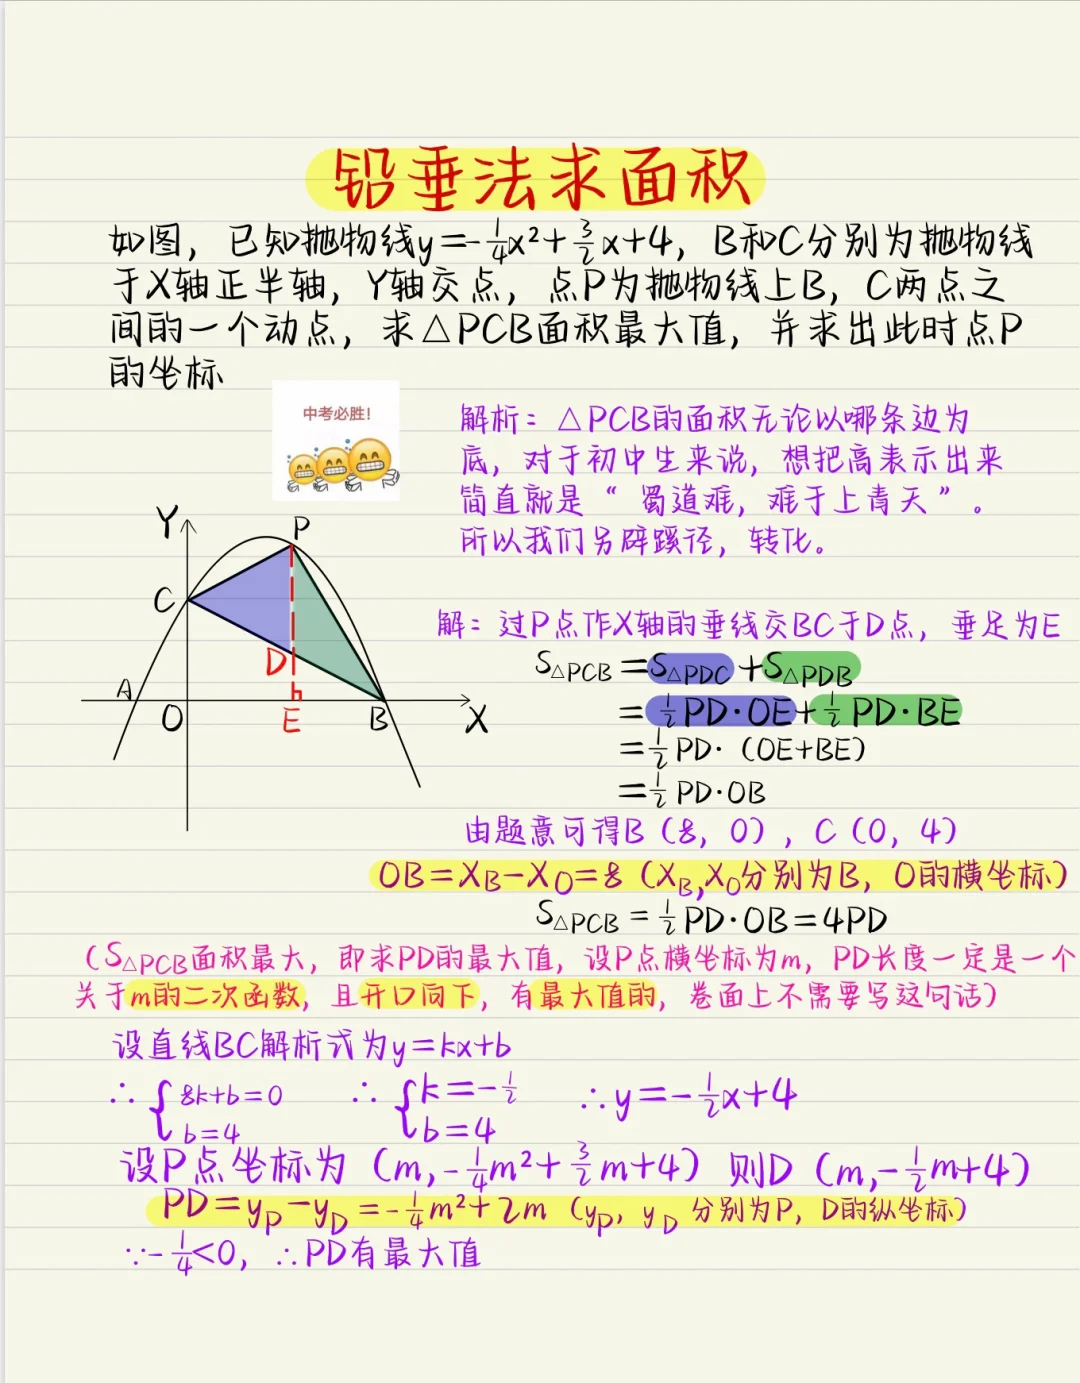 铅垂法求面积
如图，已知抛物线y=-1/4x²+3/2x+4，B和C分别为抛物线
于X轴正半轴，Y轴交点，点P为抛物线上B，C两点之
间的一个动点，求△PCB面积最大值，并求出此时点P
的坐标
中考必胜！
解析：△PCB的面积无论以哪条边为
底，对于初中生来说，想把高表示出来
简直就是“蜀道难，难于上青天”。
所以我们另辟蹊径，转化。
Y
P
C
D
A
O
E
B
X
解：过P点作X轴的垂线交BC于D点，垂足为E
S△PCB=S△PDC+S△PDB
=1/2PD·OE+1/2PD·BE
=1/2PD·（OE+BE）
=1/2PD·OB
由题意可得B（8，0），C（0，4）
OB=XB-XO=8（XB,XO分别为B，O的横坐标）
S△PCB=1/2PD·OB=4PD
（S△PCB面积最大，即求PD的最大值，设P点横坐标为m，PD长度一定是一个
关于m的二次函数，且开口向下，有最大值的，卷面上不需要写这句话）
设直线BC解析式为y=kx+b
∴{8k+b=0 ∴{k=-1/2 ∴y=-1/2x+4
b=4 b=4
设P点坐标为（m,-1/4m²+3/2m+4）则D（m,-1/2m+4）
PD=yP-yD=-1/4m²+2m（yP，yD分别为P，D的纵坐标）
∵-1/4<0，∴PD有最大值